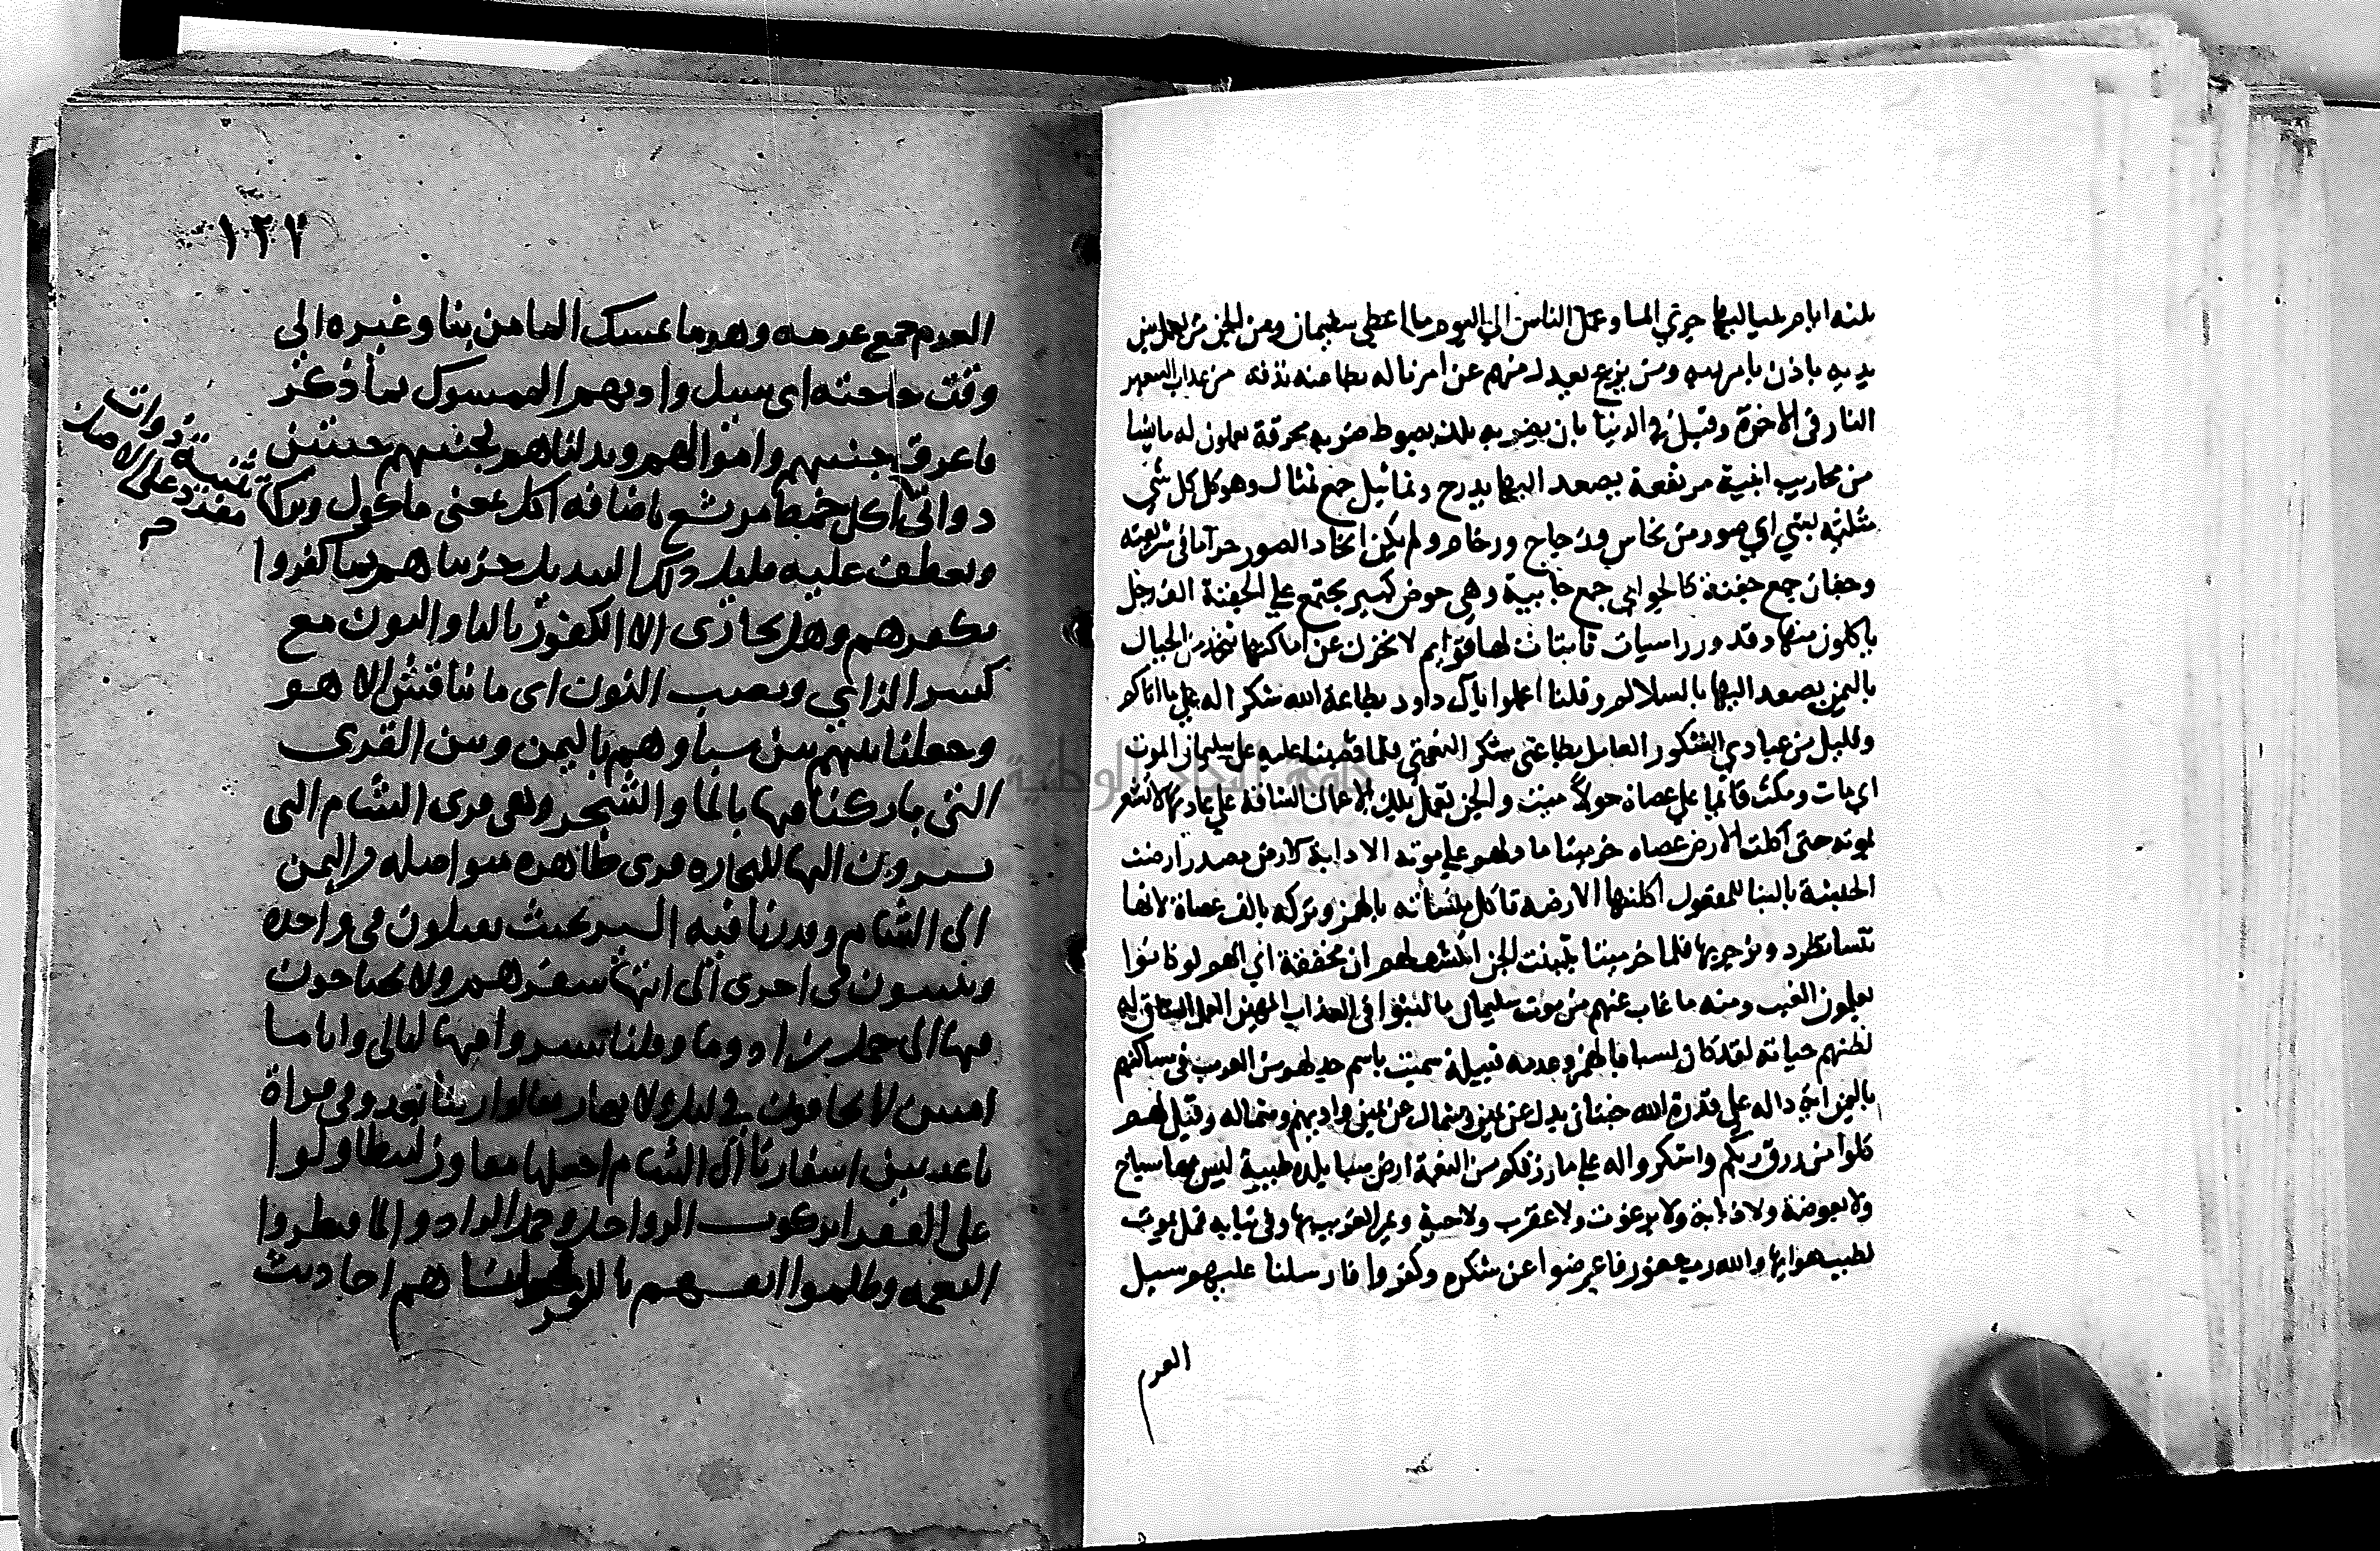 ثلثه ايام بلياليها جرتي الما وعمل الناس الي اليوم مما اعطي سليمان ومن الجن من يعمل بين
يديه باذن بامر ربه ومن يزغ يعدل منهم عن امرنا له بطاعته نذقه من عذاب السعير
النار في الاخرة وقيل في الدنيا بان يضربه ملك بسوط ضربه محرقة يعملون له ما يشا
من محاريب ابنية مرتفعة يصعد اليها بدرج وتماثيل جمع تمثال وهو كل كل شي
مثلته بشي اي صور من نحاس وزجاج ورخام ولم يكن اتخاد الصور حراما في شريعته
وجفان جمع جفنة كالجوابي جمع جابية وهي حوض كبير يجتمع علي الجفنة الف رجل
ياكلون منها وقدور راسيات ثابتات لها قوايم لا تحرك عن اماكنها تتخذ من الجبال
باليمن يصعد اليها بالسلالم وقلنا اعملوا يا آل داود بطاعة الله شكرا له علي ما اتاكم
وقليل من عبادي الشكور العامل بطاعتي شكر النعمتي فلما قضينا عليه علي سليمان الموت
اي مات ومكث قائما علي عصاه حولاً ميت والجن تعمل تلك الاعمال الشاقة علي عادتها لا تشعر
بموته حتي اكلت الارض عصاه خر ميتا ما دلهم علي موته الا دابة الارض مصدر ارضت
الخشبة بالبنا للمفعول اكلتها الارضه تاكل منساته بالهمز وتركه بالف عصاة لانها
تنسا تطرد ويزجر بها فلما خر ميتا تبينت الجن انكشف لهم ان مخففة اي انهم لو كانوا
يعلمون الغيب ومنه ما غاب عنهم من موت سليمان ما لبثوا في العذاب المهين العمل الشاق لهم
لظنهم حياته لقد كان لسبا بالهمز وعدمه قبيلة سميت باسم جد لهم من العرب في مساكنهم
باليمن اية داله علي قدرة الله جنتان بدل عن يمين وشمال عن يمين واديهم وشماله وقيل لهم
كلوا من رزق ربكم واشكروا له علي ما رزقكم من النعمة ارض سبا بلدة طيبة ليس بها سباخ
ولا بعوضة ولا ذبابة ولا برغوث ولا عقرب ولا حية ويمر الغريب بها وفي ثيابه قمل يموت
لطيب هوايها والله رب غفور فاعرضوا عن شكره وكفروا فارسلنا عليهم سيل
العرم
١٢٧
العرم جمع عرمه وهو ما يمسك الما من بنا وغيره الي
وقت حاجته اي سيل واديهم الممسوك بما ذكر
فاغرق جنتيهم واموالهم وبدلناهم بجنتيهم جنتين
ذواتي اكل خمط مر بشع باضافه اكل بمعني ماكول وتركها
ويعطف عليه واثل ذلك التبديل جزيناهم بما كفروا
بكفرهم وهل يجازي الا الكفور باليا والنون مع
كسر الزاي ونصب الكفور اي ما يناقش الا هو
وجعلنا بينهم بين سبا وهم باليمن وبين القري
التي باركنا فيها بالما والشجر وهي قري الشام التي
يسيرون اليها للتجاره قري ظاهره متواصله من اليمن
الي الشام وقدرنا فيه السير بحيث يقيلون في واحده
ويبيتون في اخري الي انتها سفرهم ولا يحتاجون
فيها الي حمل زاد وما وقلنا سيروا فيها ليالي واياما
امنين لا تخافون في ليل ولا نهار فقالوا ربنا بعد وفي قراة
باعد بين اسفارنا الي الشام اجعلها مفاوز ليتطاولوا
علي الفقرا بركوب الرواحل وحمل الزاد والما فبطروا
النعمه وظلموا انفسهم بالكفر فجعلناهم احاديث
تثنية ذوات
مفرد علي الاصل